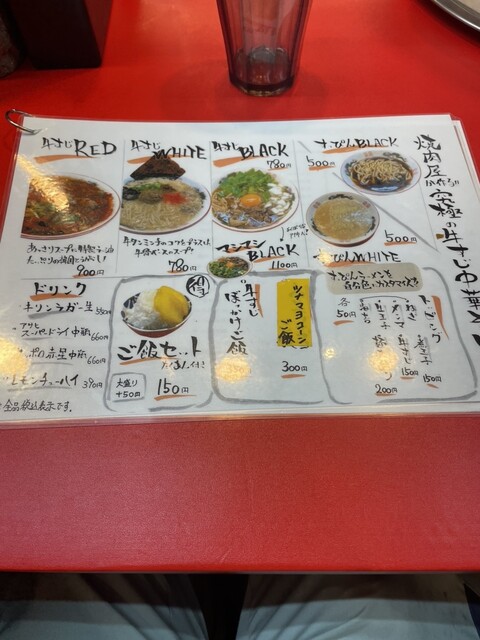 牛すじRED
あっさりスープに特製ラー油
900円
牛すじWHITE
780円
牛すじBLACK
780円
マシマシ
BLACK
1100円
すっぴんBLACK
500円
500円
すっぴんWHITE
焼肉屋が作る!!
究極の牛すじ中華そ
ドリンク
キリンラガー生 550円
アサヒ
スーパードライ中瓶 660円
ポロ赤星中瓶 660円
レモンチューハイ 390円
全品税込表示です。
得
ご飯セット
たくあん付き
大盛り
+50円
150円
牛すじ
ぼっかけご飯
ツナマヨコーン
ご飯
300円
すっぴんラーメンを
自分色にカスタマイズ!
トッピング
各50円
煮玉子 150円
牛すじ 150円
200円